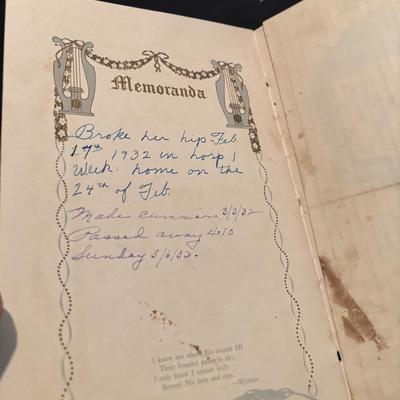 Memoranda
Broke her hip Feb.
17th 1932 in hosp 1
Week. home on the
24th of Feb.
Made cummion 3/3/32
Passed away 4:10
Sunday 3/6/32.
I know not where His islands lift
Their fronded palms in air;
I only know I cannot drift
Beyond His love and care.
—Whittier